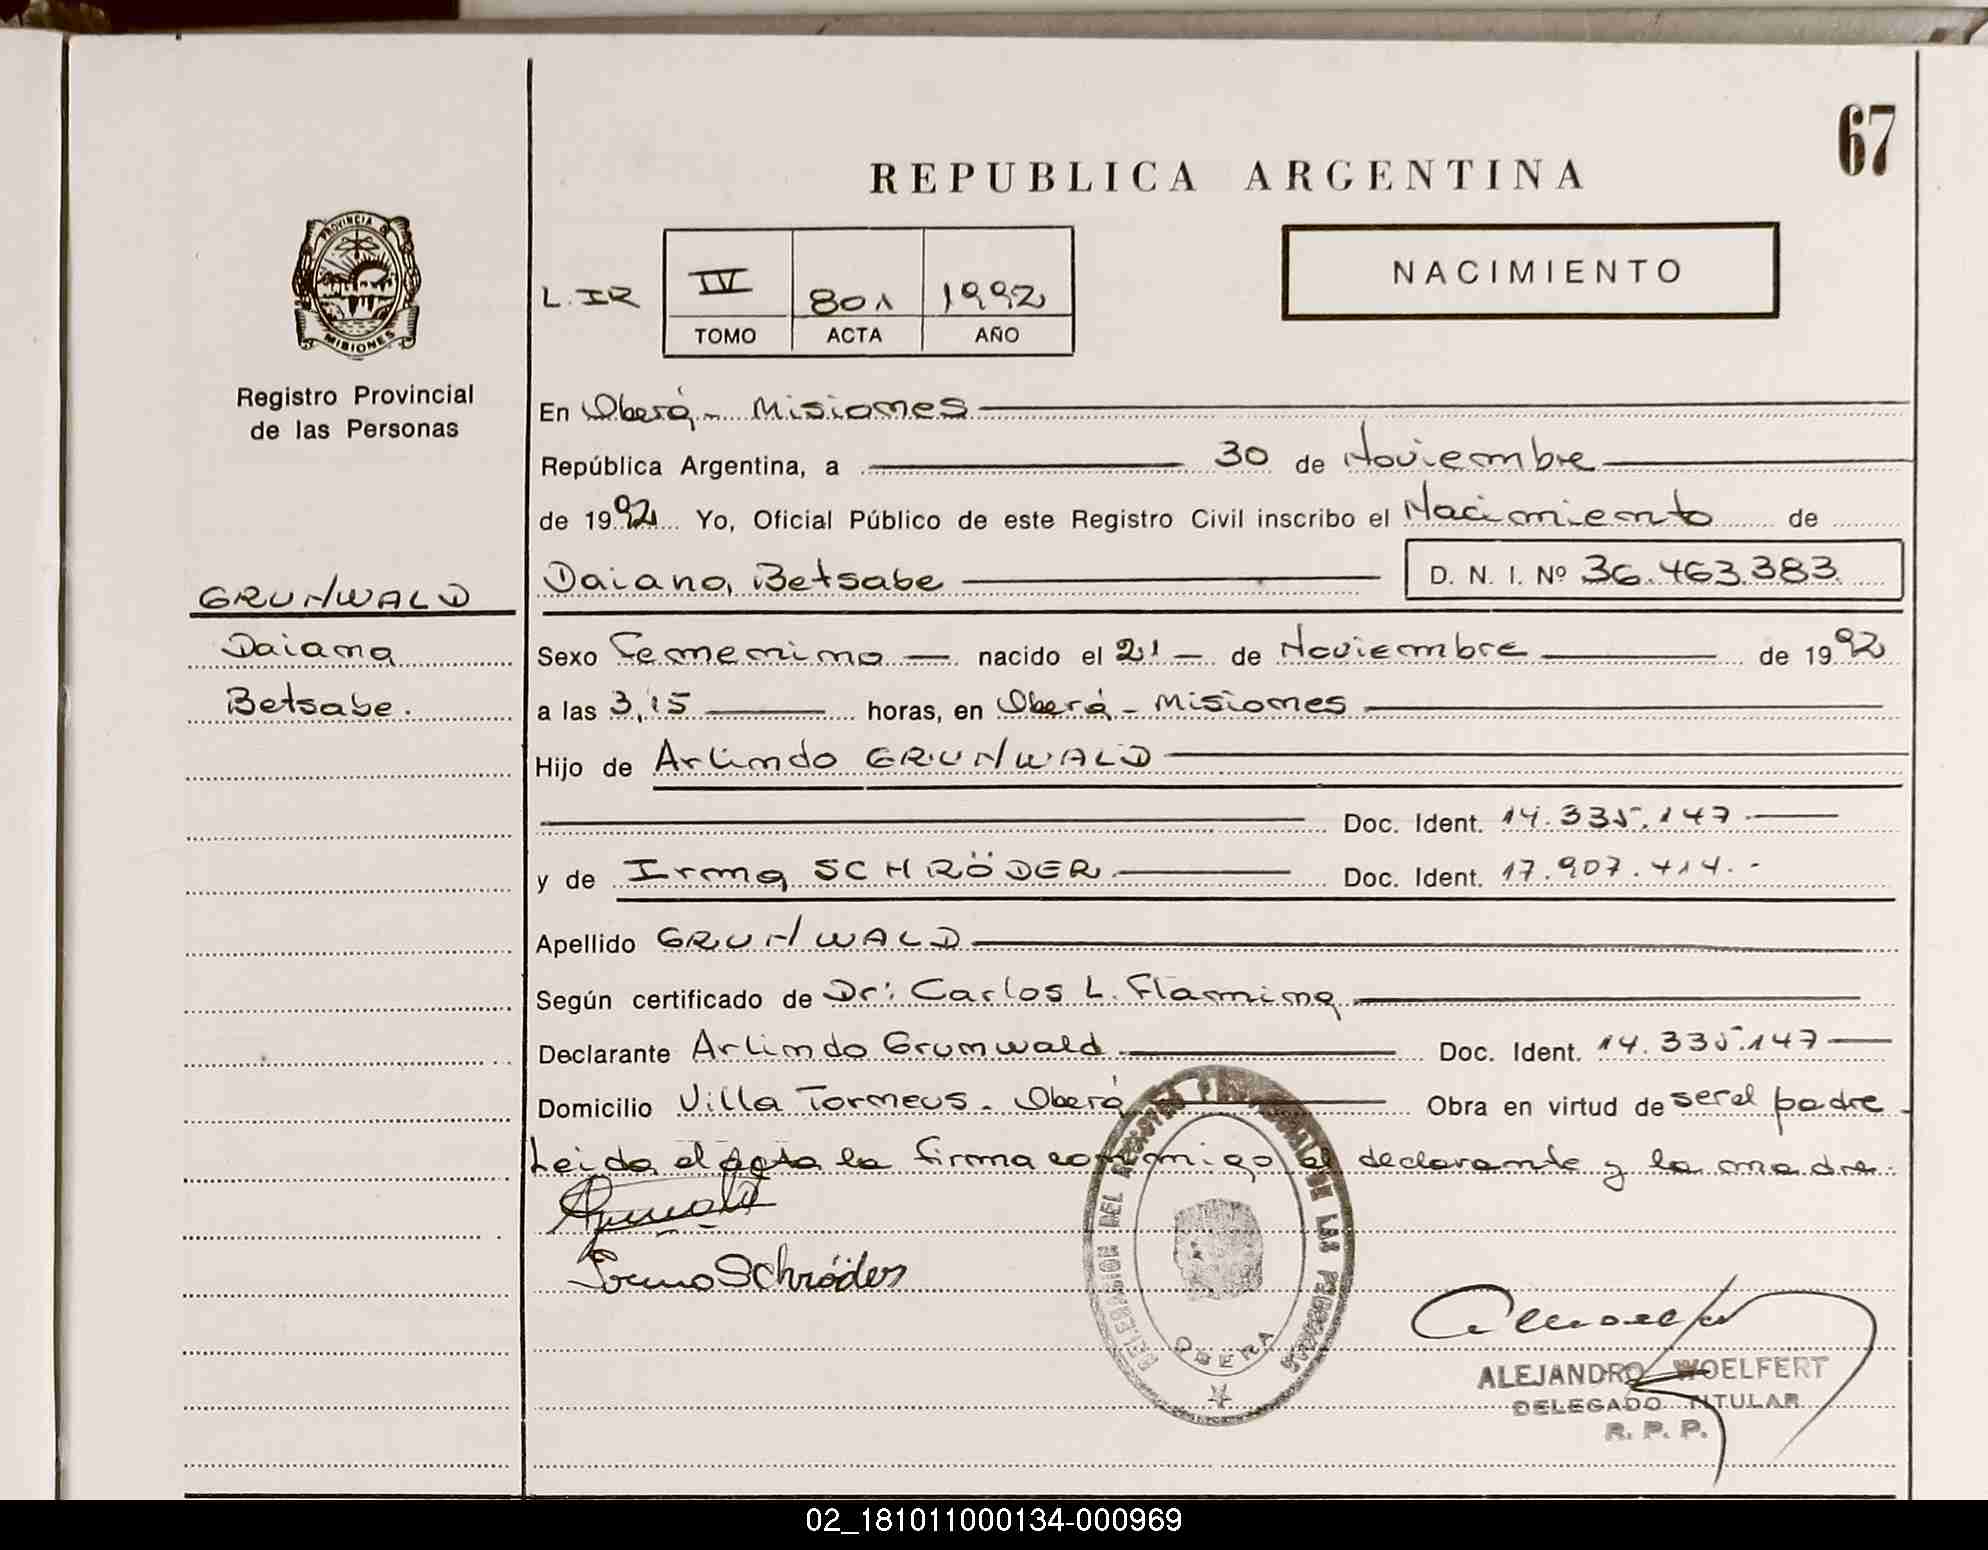 67
REPUBLICA ARGENTINA
PROVINCIA DE
MISIONES
Registro Provincial
de las Personas
L. IR
IV 801 1992
TOMO ACTA AÑO
NACIMIENTO
En Oberá - Misiones
República Argentina, a 30 de Noviembre
de 1992 Yo, Oficial Público de este Registro Civil inscribo el Nacimiento de
Daiana Betsabe D. N. I. Nº 36.463.383
GRUNWALD
Daiana
Betsabe.
Sexo Femenino nacido el 21 de Noviembre de 1992
a las 3,15 horas, en Oberá - Misiones
Hijo de Arlindo GRUNWALD
Doc. Ident. 14.335.147
y de Irma SCHRÖDER Doc. Ident. 17.907.414.-
Apellido GRUNWALD
Según certificado de Dr: Carlos L. Flaming
Declarante Arlindo Grunwald Doc. Ident. 14.335.147
Domicilio Villa Torneus - Oberá Obra en virtud de ser el padre -
Leida el acta la firma conmigo el declarante y la madre.
Irma Schröder
DELEGACION DEL REGISTRO PROVINCIAL DE LAS PERSONAS
OBERA
ALEJANDRO WOELFERT
DELEGADO TITULAR
R. P. P.
02_181011000134-000969